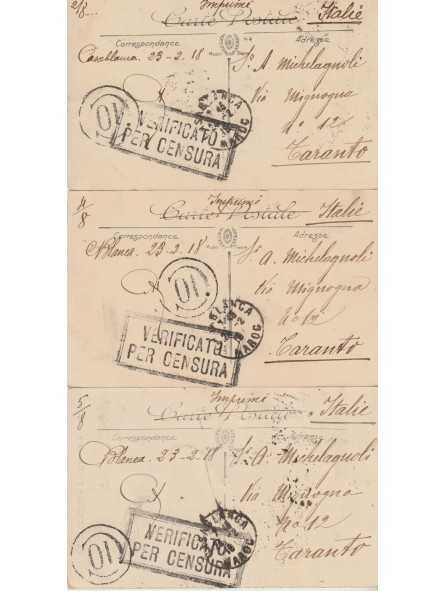 2/8
Imprimé
Carte Postale
Italie
Correspondance
Adresse
Casablanca. 23-2. 18
Sr A. Michelagnoli
Via Mignogna
No 12
Taranto
10
VERIFICATO
PER CENSURA
BLANCA
MAROC
4/8
Imprimé
Carte Postale
Italie
Correspondance
Adresse
C.Blanca. 23-2. 18
Sr A. Michelagnoli
Via Mignogna
No 12
Taranto
10
VERIFICATO
PER CENSURA
BLANCA
MAROC
5/8
Imprimé
Carte Postale
Italie
Correspondance
Adresse
C.Blanca. 23-2-18
Sr A. Michelagnoli
Via Mignogna
No 12
Taranto
10
VERIFICATO
PER CENSURA
BLANCA
MAROC